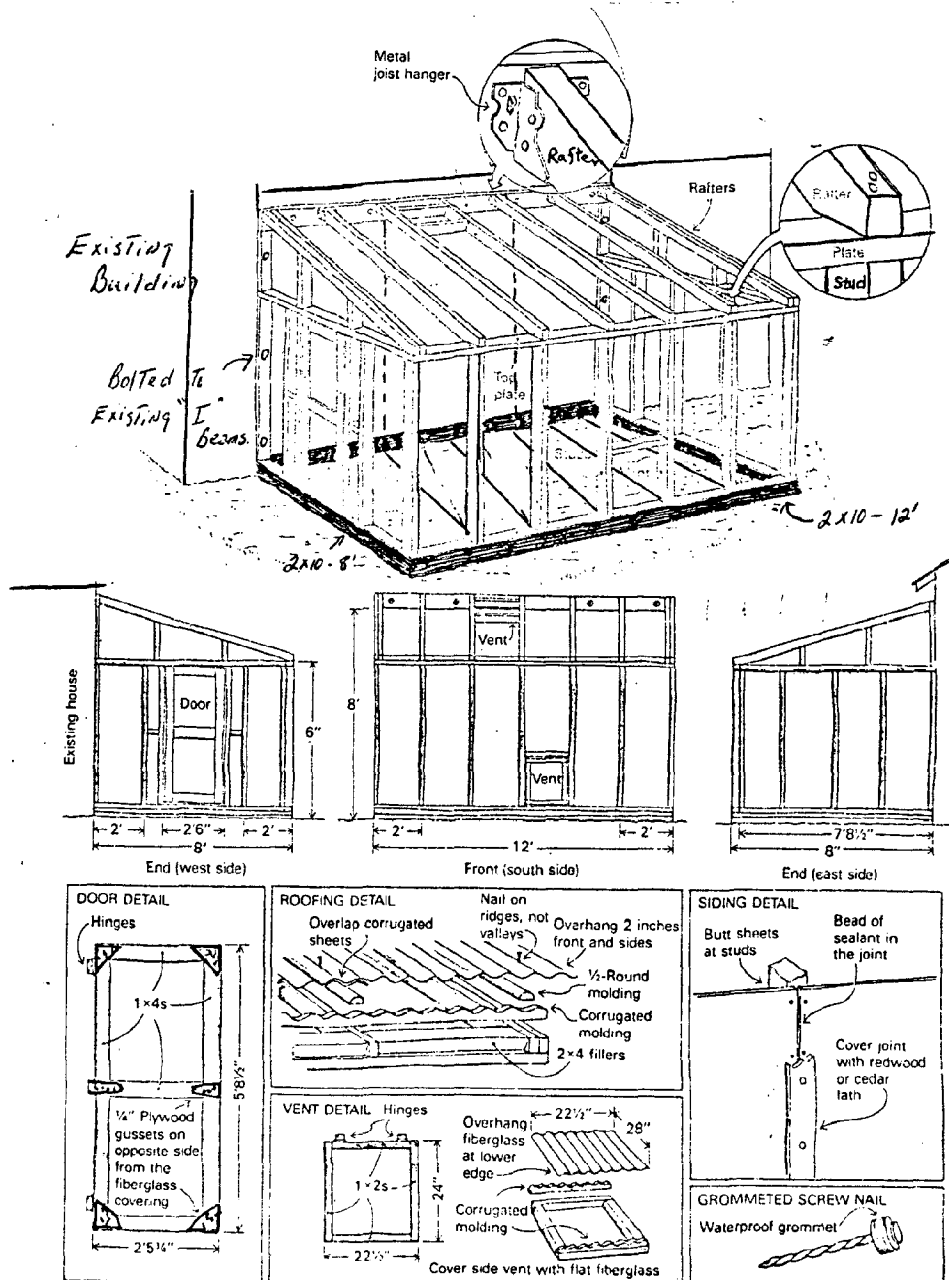 Metal
joist hanger
Rafter
Rafters
Rafter
Plate
Stud
Existing
Building
Bolted To
Existing "I"
beams.
Top
plate
2x10-8'
2x10-12'
Existing house
Door
6"
2'
2'6"
2'
8'
End (west side)
8'
Vent
Vent
2'
2'
12'
Front (south side)
7'8½"
8"
End (east side)
DOOR DETAIL
Hinges
1×4s
5'8½"
¼" Plywood
gussets on
opposite side
from the
fiberglass
covering
2'5¾"
ROOFING DETAIL
Overlap corrugated
sheets
Nail on
ridges, not
valleys
Overhang 2 inches
front and sides
½-Round
molding
Corrugated
molding
2×4 fillers
VENT DETAIL
Hinges
1×2s
24"
22½"
Overhang
fiberglass
at lower
edge
22½"
28"
Corrugated
molding
Cover side vent with flat fiberglass
SIDING DETAIL
Butt sheets
at studs
Bead of
sealant in
the joint
Cover joint
with redwood
or cedar
lath
GROMMETED SCREW NAIL
Waterproof grommet